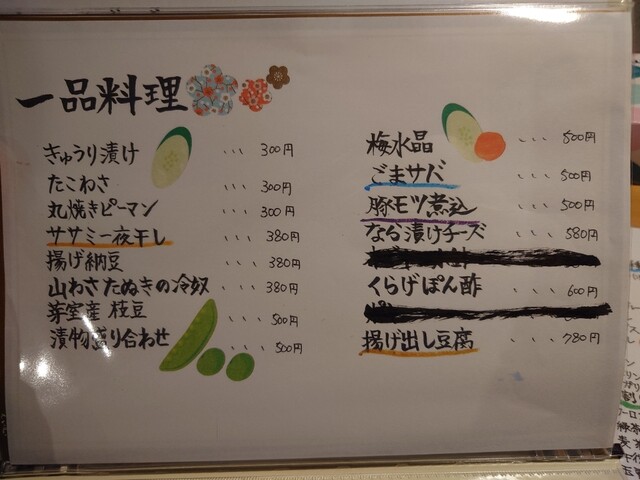 一品料理
きゅうり漬け ... 300円
たこわさ ... 300円
丸焼きピーマン ... 300円
ササミ一夜干し ... 380円
揚げ納豆 ... 380円
山わさたぬきの冷奴 ... 380円
芽室産 枝豆 ... 500円
漬物盛り合わせ ... 500円
梅水晶 ... 500円
ごまサバ ... 500円
豚モツ煮込 ... 500円
なら漬けチーズ ... 580円
くらげぽん酢 ... 600円
揚げ出し豆腐 ... 780円